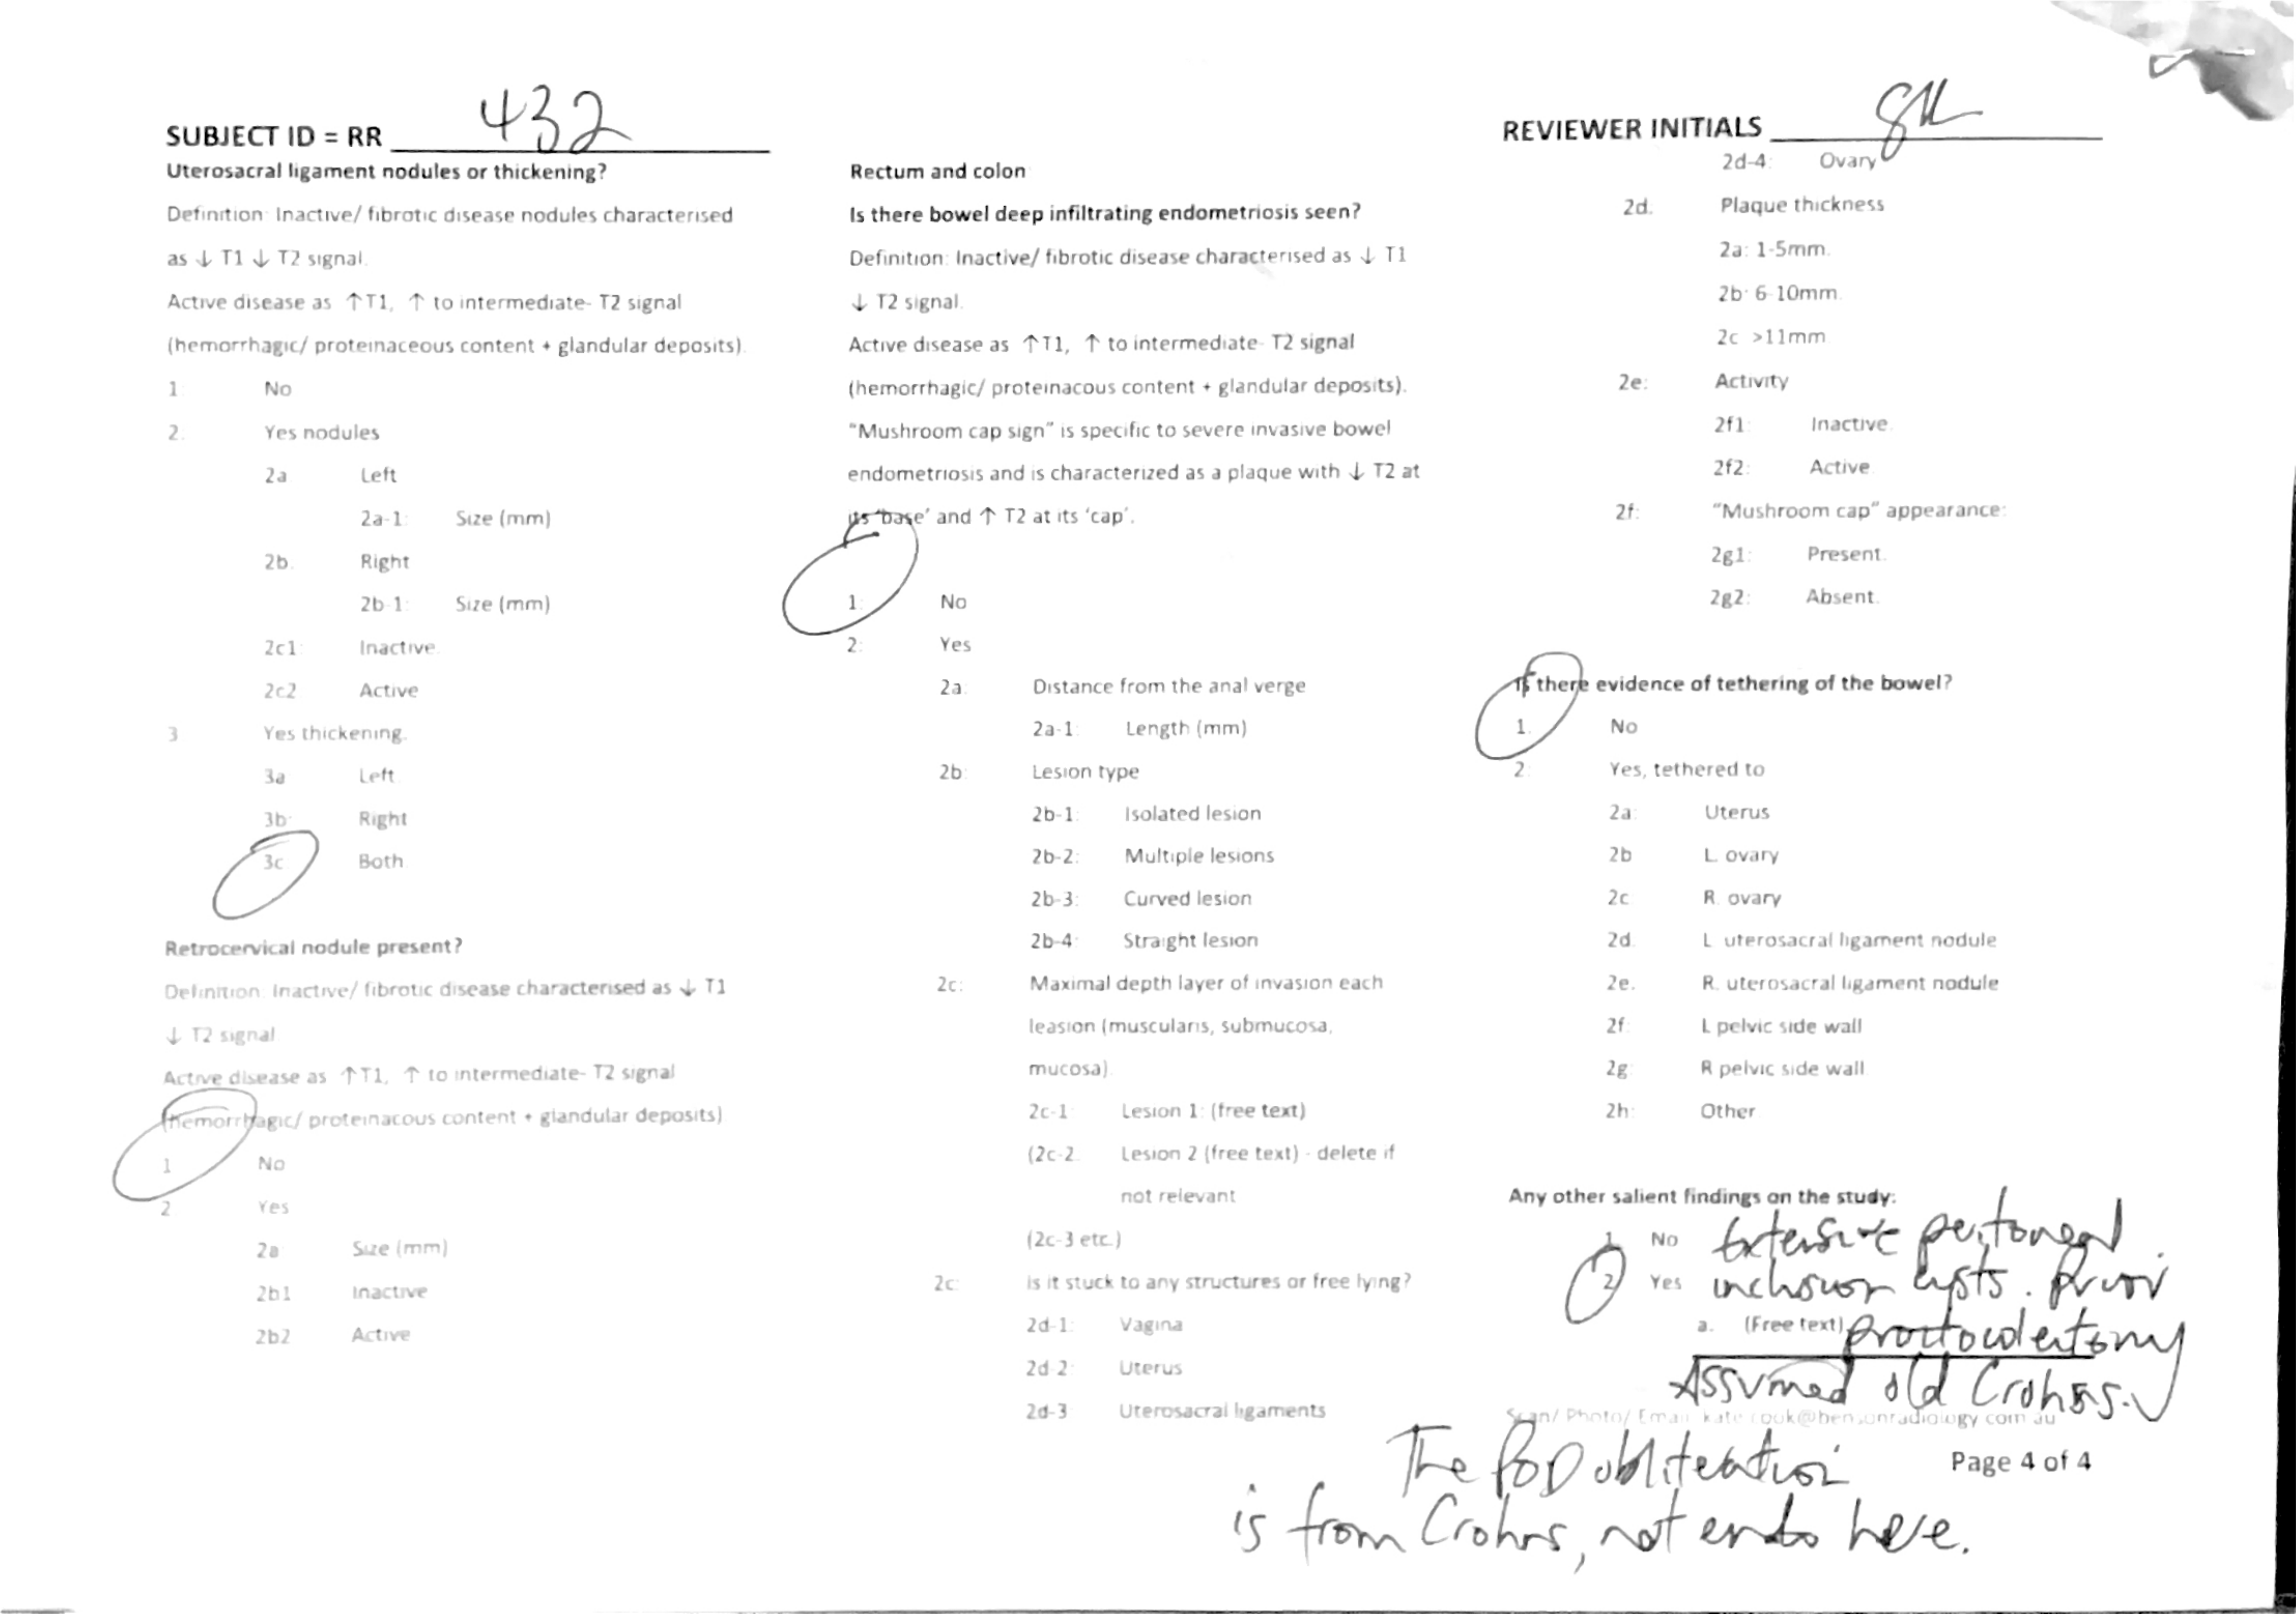 SUBJECT ID = RR 432
REVIEWER INITIALS
Uterosacral ligament nodules or thickening?
Definition: Inactive/ fibrotic disease nodules characterised
as ↓ T1 ↓ T2 signal.
Active disease as ↑T1, ↑ to intermediate- T2 signal
(hemorrhagic/ proteinaceous content + glandular deposits).
1: No
2. Yes nodules
2a Left
2a-1: Size (mm)
2b. Right
2b-1: Size (mm)
2c1: Inactive.
2c2 Active
3 Yes thickening.
3a Left
3b: Right
3c Both
Retrocervical nodule present?
Definition: Inactive/ fibrotic disease characterised as ↓ T1
↓ T2 signal
Active disease as ↑T1, ↑ to intermediate- T2 signal
(hemorrhagic/ proteinacous content + glandular deposits)
1 No
2 Yes
2a Size (mm)
2b1 Inactive
2b2 Active
Rectum and colon
Is there bowel deep infiltrating endometriosis seen?
Definition: Inactive/ fibrotic disease characterised as ↓ T1
↓ T2 signal.
Active disease as ↑T1, ↑ to intermediate- T2 signal
(hemorrhagic/ proteinacous content + glandular deposits).
“Mushroom cap sign” is specific to severe invasive bowel
endometriosis and is characterized as a plaque with ↓ T2 at
its ‘base’ and ↑ T2 at its ‘cap’.
1: No
2: Yes
2a: Distance from the anal verge
2a-1: Length (mm)
2b: Lesion type
2b-1: Isolated lesion
2b-2: Multiple lesions
2b-3: Curved lesion
2b-4: Straight lesion
2c: Maximal depth layer of invasion each
leasion (muscularis, submucosa,
mucosa).
2c-1: Lesion 1: (free text)
(2c-2. Lesion 2 (free text) - delete if
not relevant
(2c-3 etc.)
2c: Is it stuck to any structures or free lying?
2d-1: Vagina
2d-2: Uterus
2d-3 Uterosacral ligaments
2d-4: Ovary
2d. Plaque thickness
2a: 1-5mm.
2b: 6-10mm.
2c >11mm
2e: Activity
2f1: Inactive.
2f2: Active
2f: “Mushroom cap” appearance:
2g1: Present.
2g2: Absent.
Is there evidence of tethering of the bowel?
1. No
2: Yes, tethered to
2a: Uterus
2b L. ovary
2c R. ovary
2d. L. uterosacral ligament nodule
2e. R. uterosacral ligament nodule
2f: L pelvic side wall
2g R pelvic side wall
2h: Other
Any other salient findings on the study:
1. No Extensive peritoneal
2 Yes inclusion cysts. Prior
a. (Free text) proctocolectomy
Assumed old Crohns.
Scan/ Photo/ Email kate.cook@bensonradiology.com.au
The POD obliteration
Page 4 of 4
is from Crohns, not endo here.